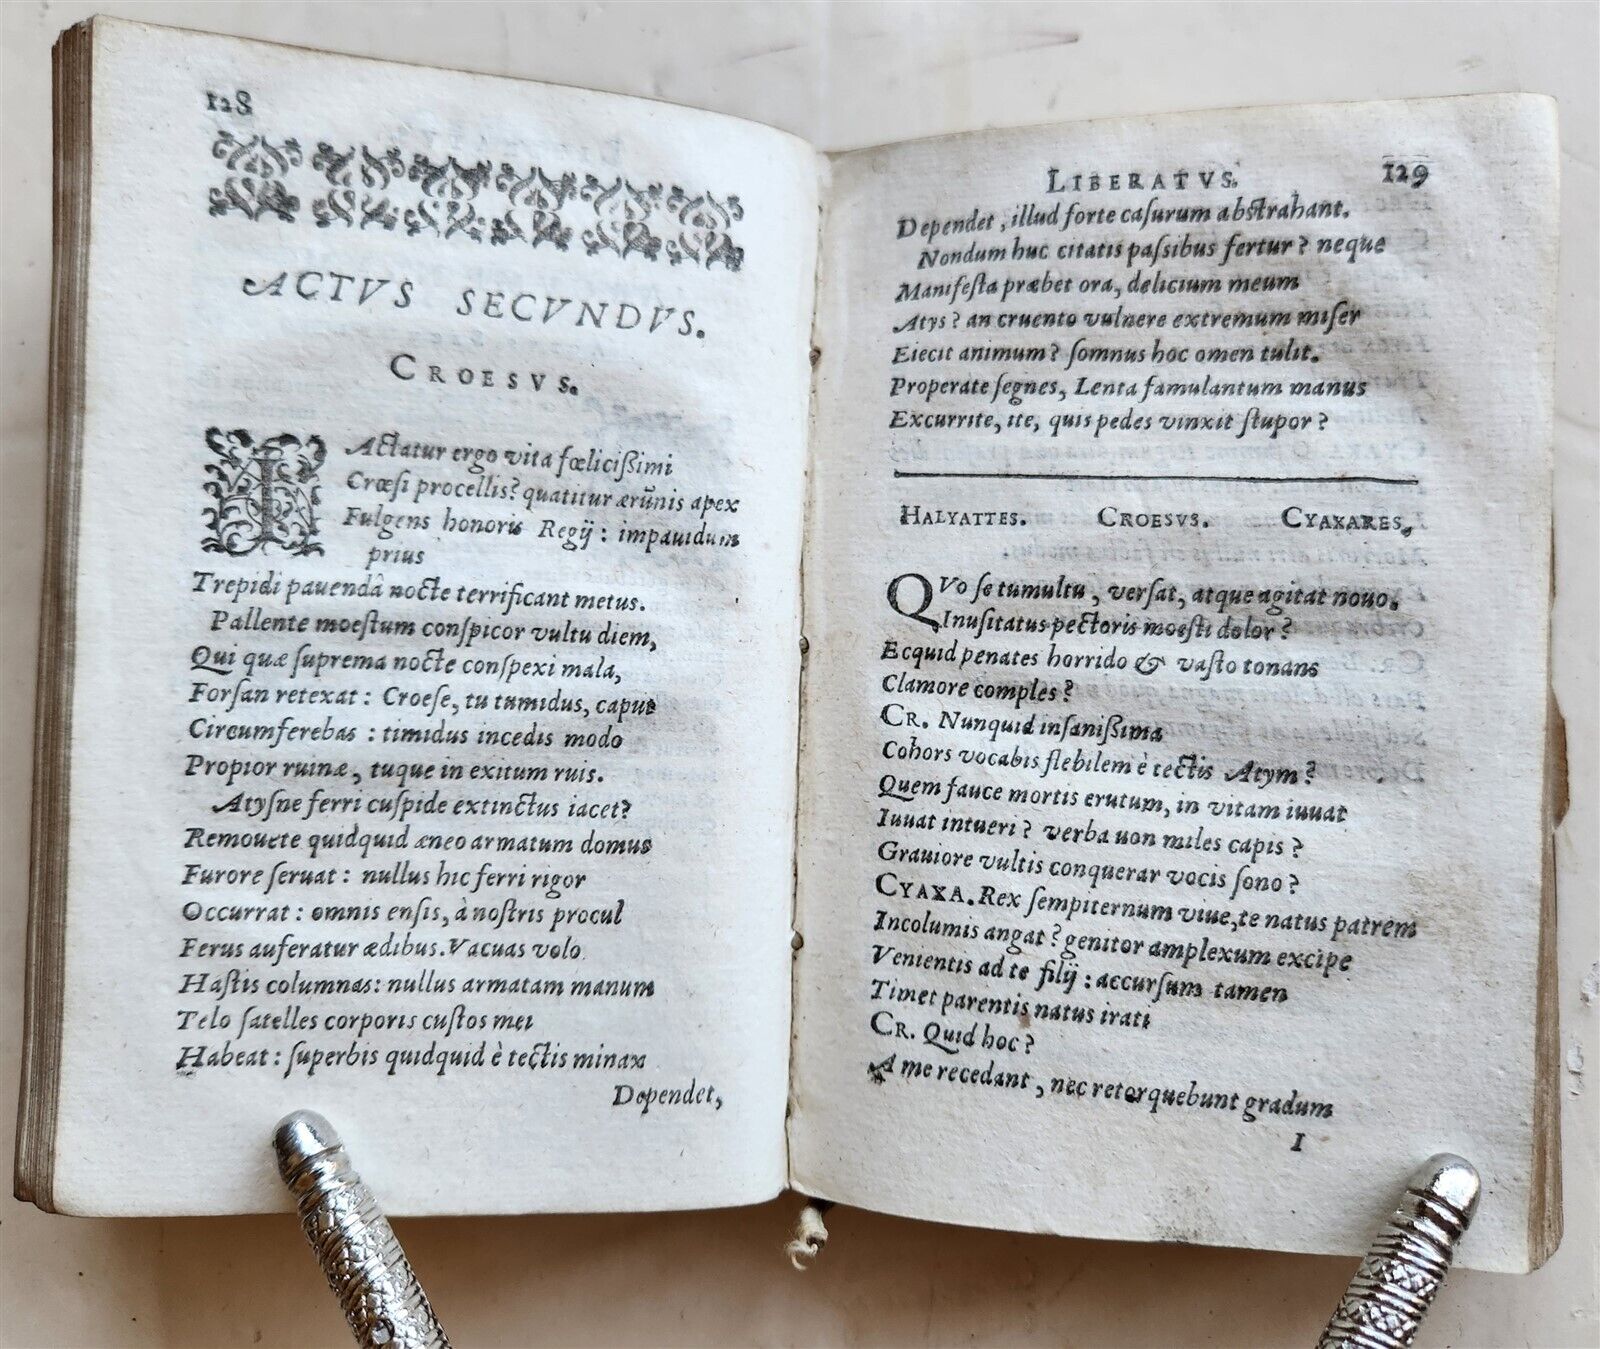 128
ACTVS SECVNDVS.
CROESVS.
IActatur ergo vita fœlicißimi
Crœsi procellis? quatitur ærūnis apex
Fulgens honoris Regij : impauidum
prius
Trepidi pauendâ nocte terrificant metus.
Pallente moestum conspicor vultu diem,
Qui quæ suprema nocte conspexi mala,
Forsan retexat : Croese, tu tumidus, caput
Circumferebas : timidus incedis modo
Propior ruinæ, tuque in exitum ruis.
Atysne ferri cuspide extinctus iacet?
Remouete quidquid æneo armatum domus
Furore seruat : nullus hic ferri rigor
Occurrat : omnis ensis, à nostris procul
Ferus auferatur ædibus. Vacuas volo
Hastis columnas : nullus armatam manum
Telo satelles corporis custos mei
Habeat : superbis quidquid è tectis minax
Dependet,
LIBERATVS. 129
Dependet, illud forte casurum abstrahant.
Nondum huc citatis passibus fertur? neque
Manifesta præbet ora, delicium meum
Atys? an cruento vulnere extremum miser
Eiecit animum? somnus hoc omen tulit.
Properate segnes, Lenta famulantum manus
Excurrite, ite, quis pedes vinxit stupor?
HALYATTES. CROESVS. CYAXARES.
QVo se tumultu, versat, atque agitat nouo.
Inusitatus pectoris moesti dolor?
Ecquid penates horrido & vasto tonans
Clamore comples?
CR. Nunquid insanißima
Cohors vocabis flebilem è tectis Atym?
Quem fauce mortis erutum, in vitam iuuat
Iuuat intueri? verba uon miles capis?
Grauiore vultis conquerar vocis sono?
CYAXA. Rex sempiternum viue, te natus patrem
Incolumis angat? genitor amplexum excipe
Venientis ad te filij : accursum tamen
Timet parentis natus irati
CR. Quid hoc?
A me recedant, nec retorquebunt gradum
I